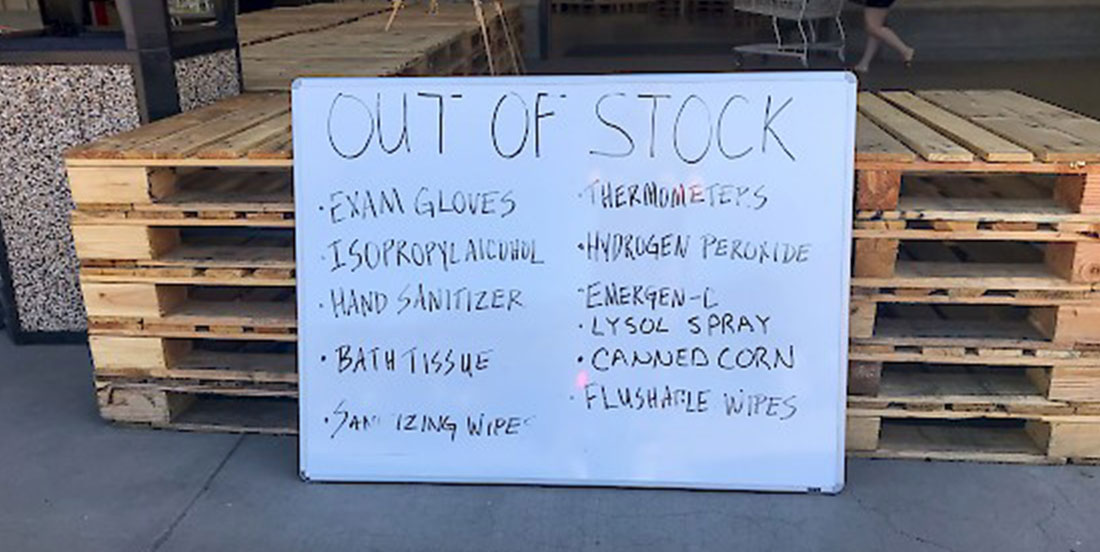 OUT OF STOCK
· EXAM GLOVES
· ISOPROPYL ALCOHOL
· HAND SANITIZER
· BATH TISSUE
· SANITIZING WIPES
· THERMOMETERS
· HYDROGEN PEROXIDE
· EMERGEN-C
· LYSOL SPRAY
· CANNED CORN
· FLUSHABLE WIPES